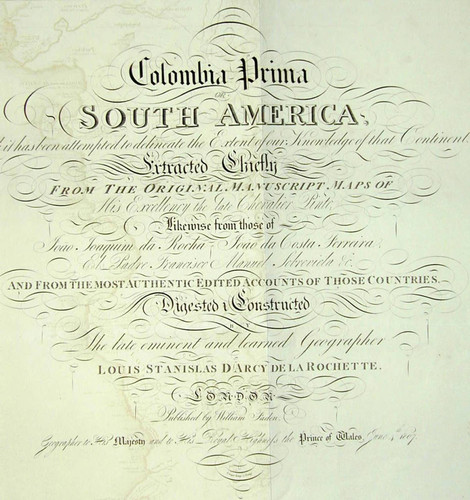 Colombia Prima
OR
SOUTH AMERICA,
it has been attempted to delineate the Extent of our Knowledge of that Continent
Extracted Chiefly
FROM THE ORIGINAL MANUSCRIPT MAPS OF
His Excellency the late Chevalier Pinto
Likewise from those of
João Joaquim da Rocha João da Costa Ferreira
El Padre Francisco Manuel Sobreviela &c.
AND FROM THE MOST AUTHENTIC EDITED ACCOUNTS OF THOSE COUNTRIES.
Digested & Constructed
BY
The late eminent and learned Geographer
LOUIS STANISLAS D'ARCY DE LA ROCHETTE.
LONDON
Published by William Faden,
Geographer to His Majesty and to His Royal Highness the Prince of Wales, June 4th 1807